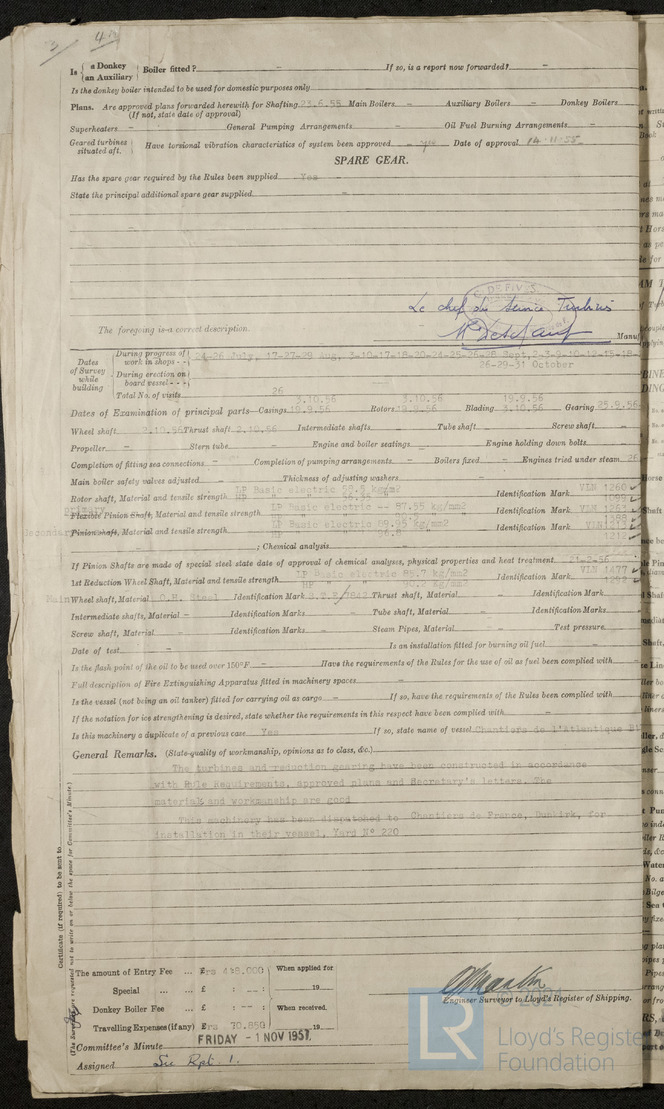 Is { a Donkey / an Auxiliary } Boiler fitted? - If so, is a report now forwarded? -
Is the donkey boiler intended to be used for domestic purposes only
Plans. Are approved plans forwarded herewith for Shafting 23.6.55 Main Boilers - Auxiliary Boilers - Donkey Boilers
(If not, state date of approval)
Superheaters - General Pumping Arrangements - Oil Fuel Burning Arrangements -
Geared turbines situated aft. } Have torsional vibration characteristics of system been approved - yes Date of approval 14-11-55
SPARE GEAR.
Has the spare gear required by the Rules been supplied Yes
State the principal additional spare gear supplied -
Le chef du Service Turbines
The foregoing is a correct description.
Manuf
Dates of Survey while building
During progress of work in shops - - 24-26 July, 17-27-29 Aug, 3-10-17-18-20-24-25-26-28 Sept, 2-3-9-10-12-15-18-
During erection on board vessel - - - 26-29-31 October
Total No. of visits 26
3.10.56 3.10.56 19.9.56
Dates of Examination of principal parts—Casings 19.9.56 Rotors 19.9.56 Blading 3.10.56 Gearing 25.9.56
Wheel shaft 2.10.56 Thrust shaft 2.10.56 Intermediate shafts Tube shaft - Screw shaft -
Propeller - Stern tube - Engine and boiler seatings - Engine holding down bolts -
Completion of fitting sea connections - Completion of pumping arrangements - Boilers fixed - Engines tried under steam 26
Main boiler safety valves adjusted - Thickness of adjusting washers
Rotor shaft, Material and tensile strength LP Basic electric kg/mm2 Identification Mark VLN 1260
1099
primary
Flexible Pinion Shaft, Material and tensile strength LP Basic electric -- 87.55 kg/mm2 Identification Mark VLN 1263
Secondary
Pinion shaft, Material and tensile strength LP Basic electric 89.95 kg/mm2 Identification Mark
HP " " 96.8 1212
; Chemical analysis
If Pinion Shafts are made of special steel state date of approval of chemical analyses, physical properties and heat treatment 21-2-56
1st Reduction Wheel Shaft, Material and tensile strength LP Basic electric kg/mm2 Identification Mark VLN 1477
1292
Main Wheel shaft, Material O.H. Steel Identification Mark S.T.E/7842 Thrust shaft, Material - Identification Mark
Intermediate shafts, Material - Identification Marks - Tube shaft, Material - Identification Marks
Screw shaft, Material - Identification Marks - Steam Pipes, Material - Test pressure
Date of test - Is an installation fitted for burning oil fuel -
Is the flash point of the oil to be used over 150°F - Have the requirements of the Rules for the use of oil as fuel been complied with -
Full description of Fire Extinguishing Apparatus fitted in machinery spaces -
Is the vessel (not being an oil tanker) fitted for carrying oil as cargo - If so, have the requirements of the Rules been complied with -
If the notation for ice strengthening is desired, state whether the requirements in this respect have been complied with -
Is this machinery a duplicate of a previous case Yes If so, state name of vessel Chantiers de l'Atlantique
General Remarks. (State quality of workmanship, opinions as to class, &c.)
The turbines and reduction gearing have been constructed in accordance
with Rule Requirements, approved plans and Secretary's letters. The
materials and workmanship are good
This machinery has been dispatched to Chantiers de France, Dunkirk, for
installation in their vessel, Yard No 220
Certificate (if required) to be sent to
(The Surveyors are requested not to write on or below the space for Committee's Minute.)
The amount of Entry Fee ... £rs 438.000 When applied for
Special ... ... £ : -- : 19
Donkey Boiler Fee ... £ : -- : When received.
Travelling Expenses (if any) £rs 70.850 19
Engineer Surveyor to Lloyd's Register of Shipping.
Committee's Minute FRIDAY - 1 NOV 1957
Assigned See Rpt. 1.
LR
2021
Lloyd's Register
Foundation